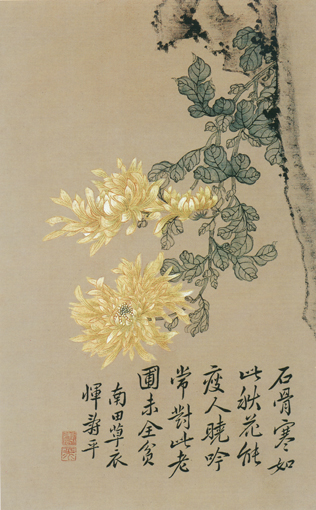 石骨寒如
此秋花能
瘦人晓吟
常對此老
圃未全貧
南田草衣
惲壽平